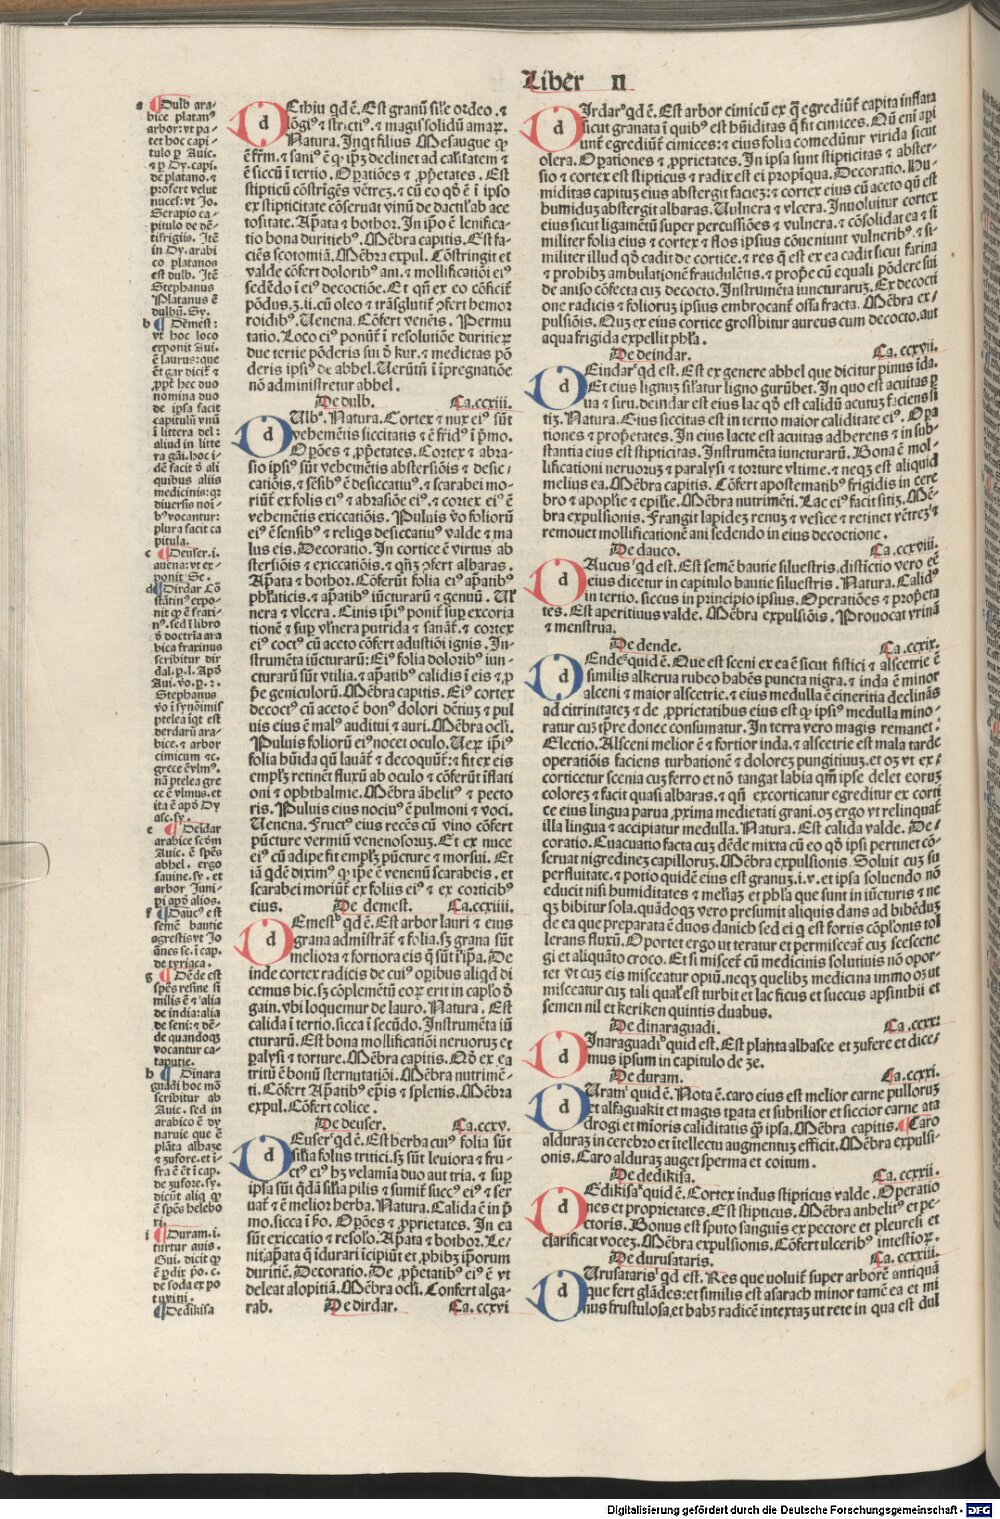 Liber II
a ¶ Dulb ara-
bice platanꝰ
arbor: vt pa-
tet hoc capi-
tulo ꝑ Auic.
⁊ ꝑ Dy. capi.
de platano. ⁊
profert velut
nuces: vt Jo.
Serapio ca-
pitulo de de-
in Dy. arabi
co platanos
est dulb. Itē
Stephanus
Platanus ē
dulbū. Sy.
b ¶ Demest:
vt hoc loco
exponit Aui.
ē laurus: que
nomina duo
de ipsa facit
capitulū vnū
ī littera del:
aliud in litte
quibus aliis
medicinis: qꝛ
diuersis noī-
bꝰ vocantur:
plura facit ca
pitula.
c ¶ Deuser .i.
auena: vt ex-
ponit Se.
d ¶ Dirdar Cō
bica fraxinus
scribitur dir
Stephanus
derdarū ara-
bice. ⁊ arbor
cimicum ⁊c.
nā ptelea gre
ce ē vlmus. et
ita ē apd Dy
asc. sy.
e ¶ Deidar
arabice scd̄m
Auic. ē spēs
abhel. ergo
sauine. sy. et
arbor Juni-
pi apd alios.
f ¶ Daucꝰ est
semē bautie
agrestis: vt Jo
de tyriaca.
g ¶ Dēde est
spēs resine si
milis ē ⁊ alia
de india: alia
de seni: ⁊ dē-
de quandoqꝫ
vocantur ca-
tapucie.
h ¶ Dinara
guadi hoc mō
scribitur ab
Auic. sed in
arabico ē dy
naruie que ē
plāta albaze
⁊ zufore. et ī-
fra ē ēt ī cap.
de zufore. sy.
dicūt aliq̄ qꝙ
ē spēs helebo
ri.
i ¶ Duram .i.
turtur auis.
Gui. dicit qꝙ
de soda ex po
¶ Dedikisa
Ethiu qd ē. Est granū sil'e ordeo. ⁊
lōgiꝰ ⁊ strictiꝰ. ⁊ magis solidū amaꝝ.
Natura. Inqͥt filius Mesaugue qꝙ
ē siccū ī tertio. Opatiōes ⁊ ꝓprietates. Est
stipticū cōstrīgēs vētrez. ⁊ cū eo qd ē ī ipso
ex stipticitate cōseruat vinū de dactil'ab ace
tositate. Apata ⁊ bothor. In ipō ē lenifica-
tio bona duritiebꝰ. Mēbra capitis. Est fa-
ciēs scotomiā. Mēbra expul. Cōstringit et
valde cōfert doloribꝰ ani. ⁊ mollificatiōi eiꝰ
sedēdo ī eiꝰ decoctiōe. Et qn̄ ex eo cōficit̄
pōdus. ʒ. ii. cū oleo ⁊ trāsglutit̄ ꝯfert hemor
roidibꝰ. Uenena. Cōfert venēis. Permu
tatio. Loco eiꝰ ponūt̄ ī resolutiōe duritieꝝ
due tertie pōderis sui d̄ kur. ⁊ medietas pō
deris ipsiꝰ de abbel. Uerūtn̄ ī īpregnatiōe
nō administretur abbel.
De dulb. Ca. ccxiii.
Ulbꝰ. Natura. Cortex ⁊ nux eiꝰ sūt
vehemētis siccitatis ⁊ ē frīdꝰ ī pͥmo.
Opōes ⁊ ꝓprietates. Cortex ⁊ abra-
sio ipsiꝰ sūt vehemētis abstersiōis ⁊ desic-
catiōis. ⁊ sēsibꝰ ē desiccatiuꝰ. ⁊ scarabei mo-
riūt̄ ex foliis eiꝰ ⁊ abrasiōe eiꝰ. ⁊ cortex eiꝰ ē
vehemētis exiccatiōis. Puluis v̄o foliorū
eiꝰ ē sensibꝰ ⁊ reliqͥs desiccatiuꝰ valde ⁊ ma
lus eis. Decoratio. In cortice ē virtus ab
stersiōis ⁊ exiccatiōis. ⁊ qn̄ꝫ ꝯfert albaras.
Apata ⁊ bothor. Cōferūt folia eiꝰ apatibꝰ
phl'aticis. ⁊ apatibꝰ iūcturarū ⁊ genuū. Ul'
nera ⁊ vlcera. Cinis ipiꝰ ponit̄ sup excoria
tionē ⁊ sup vl'nera putrida ⁊ sanāt̄. ⁊ cortex
eiꝰ coctꝰ cū aceto cōfert adustiōi ignis. In-
strumēta iūcturarū: Eiꝰ folia doloribꝰ iun-
cturarū sūt vtilia. ⁊ apatibꝰ calidis ī eis ⁊ ꝓ
p̄e geniculorū. Mēbra capitis. Eiꝰ cortex
decoctꝰ cū aceto ē bonꝰ dolori dētiuꝫ ⁊ pul
uis eius ē malꝰ auditui ⁊ auri. Mēbra ocl'i.
Puluis foliorū eiꝰ nocet oculo. Ueꝝ ipiꝰ
folia hūida qn̄ lauāt̄ ⁊ decoquūt̄: ⁊ fit ex eis
empl'ꝫ retinet fluxū ab oculo ⁊ cōferūt īflati
oni ⁊ ophthalmie. Mēbra āhelitꝰ ⁊ pecto
ris. Puluis eius nociuꝰ ē pulmoni ⁊ voci.
Uenena. Fructꝰ eius recēs cū vino cōfert
pūcture vermiū venenosoruꝫ. Et ex nuce
eiꝰ cū adipe fit empl'ꝫ pūcture ⁊ morsui. Et
iā qdē diximꝰ qꝙ ipe ē venenū scarabeis. et
scarabei moriūt̄ ex foliis eiꝰ ⁊ ex corticibꝰ
eius. De demest. Ca. ccxiiii.
Emestꝰ qd ē. Est arbor lauri ⁊ eius
grana admistrāt̄ ⁊ folia. sꝫ grana sūt
meliora ⁊ fortiora eis q̄ sūt ī ipa. De
inde cortex radicis de cuiꝰ opibus aliqd di
cemus hic. sꝫ cōplemētū eoꝝ erit in caplo d̄
gain. vbi loquemur de lauro. Natura. Est
calida ī tertio. sicca ī secūdo. Instrumēta iū
cturarū. Est bona mollificatiōi neruoruꝫ et
ꝑalysi ⁊ torture. Mēbra capitis. Qd ex ea
tritū ē bonū sternutatiōi. Mēbra nutrimē-
ti. Cōfert Apatibꝰ epatis ⁊ splenis. Mēbra
expul. Cōfert colice.
De deuser. Ca. ccxv.
Euserꝰ qd ē. Est herba cuiꝰ folia sūt
sil'ia foliis tritici. sꝫ sūt leuiora ⁊ fru-
ctꝰ eiꝰ hꝫ velamīa duo aut tria. ⁊ sup
ipsa sūt qdā sil'ia pilis ⁊ sumit̄ succꝰ eiꝰ ⁊ ser
uat̄ ⁊ ē melior herba. Natura. Calida ē in pͥ
mo. sicca ī fo. Opōes ⁊ ꝓprietates. In ea
sūt exiccatio ⁊ resolo. Apata ⁊ bothor. Le-
nit apata q̄ īdurari īcipiūt ⁊ ꝓhibꝫ iporum
duritiē. Decoratio. De ꝓprietatibꝰ eiꝰ ē vt
deleat alopitiā. Mēbra ocl'i. Confert alga-
rab. De dirdar. Ca. ccxvi
Irdarꝰ qd ē. Est arbor cimicū ex q̄ egrediūt̄ capita inflata
sicut granata ī quibꝰ est hūiditas q̄ fit cimices. Qn̄ eni api
unt̄ egrediūt̄ cimices: ⁊ eius folia comedūtur virida sicut
olera. Opationes ⁊ ꝓprietates. In ipsa sunt stipticitas ⁊ abster-
sio ⁊ cortex est stipticus ⁊ radix est ei propiqua. Decoratio. Hu-
miditas capituꝫ eius abstergit facieꝫ: ⁊ cortex eius cū aceto qn̄ est
humiduꝫ abstergit albaras. Uulnera ⁊ vlcera. Inuoluitur cortex
eius sicut ligamētū super percussiōes ⁊ vulnera. ⁊ cōsolidat ea ⁊ si
militer folia eius ⁊ cortex ⁊ flos ipsius cōueniunt vulneribꝰ. ⁊ si-
militer illud qd cadit de cortice. ⁊ res q̄ est ex ea cadit sicut farina
⁊ prohibꝫ ambulationē fraudulētis. ⁊ prope cū equali pōdere sui
de aniso cōfecta cuꝫ decocto. Instrumēta iuncturaruꝫ. Ex decocti
one radicis ⁊ folioruꝫ ipsius embrocant̄ ossa fracta. Mēbra ex-
pulsiōis. Quꝫ ex eius cortice grossi bibitur aureus cum decocto. aut
aqua frigida expellit phl'a.
De deindar. Ca. ccxvii.
Eindarꝰ qd est. Est ex genere abbel que dicitur pinus īda.
Et eius lignuꝫ sil'atur ligno gurūbet. In quo est acuitas ꝑ
ua ⁊ siru. deindar est eius lac qd est calidū acutuꝫ faciens si
tiꝫ. Natura. Eius siccitas est in tertio maior caliditate eiꝰ. Opa
tiones ⁊ propetates. In eius lacte est acuitas adherens ⁊ in sub-
stantia eius est stipticitas. Instrumēta iuncturarū. Bona ē mol-
lificationi neruoruꝫ ⁊ paralysi ⁊ torture vltime. ⁊ neqꝫ est aliquid
melius ea. Mēbra capitis. Cōfert apostematibꝰ frigidis in cere
bro ⁊ apoplie ⁊ epilie. Mēbra nutrimēti. Lac eiꝰ facit sitiꝫ. Mē-
bra expulsionis. Frangit lapideꝫ renuꝫ ⁊ vesice ⁊ retinet vētreꝫ ⁊
remouet mollificationē ani sedendo in eius decoctione.
De dauco. Ca. ccxviii.
Aucusꝰ qd est. Est semē bautie siluestris. distictio vero eē
eius dicetur in capitulo bautie siluestris. Natura. Calidꝰ
in tertio. siccus in principio ipsius. Operatiōes ⁊ propeta
tes. Est aperitiuus valde. Mēbra expulsiōis. Prouocat vrinā
⁊ menstrua.
De dende. Ca. ccxix.
Endeꝰ quid ē. Que est sceni ex ea ē sicut fistici ⁊ alscetrie ē
similis alkerua rubeo habēs puncta nigra. ⁊ inda ē minor
alceni ⁊ maior alscetrie. ⁊ eius medulla ē cineritia declinās
ad citrinitateꝫ ⁊ de ꝓprietatibus eius est qꝙ ipsiꝰ medulla mino-
ratur cuꝫ tpre donec consumatur. In terra vero magis remanet.
Electio. Alsceni melior ē ⁊ fortior inda. ⁊ alscetrie est mala tarde
operatiōis faciens turbationē ⁊ doloreꝫ pungitiuuꝫ. et oꝫ vt ex-
corticetur scenia cuꝫ ferro et nō tangat labia qm̄ ipse delet eoruꝫ
coloreꝫ ⁊ facit quasi albaras. ⁊ qn̄ excorticatur egreditur ex corti
ce eius lingua parua ꝓxima medietati grani. oꝫ ergo vt relinquat̄
illa lingua ⁊ accipiatur medulla. Natura. Est calida valde. De-
coratio. Euacuatio facta cuꝫ dēde mixta cū eo qd ipsi pertinet cō-
seruat nigredineꝫ capilloruꝫ. Mēbra expulsionis Soluit cuꝫ su
perfluitate. ⁊ potio quidē eius est granuꝫ .i. v. et ipsa soluendo nō
educit nisi humiditates ⁊ mel'iaꝫ et phl'a que sunt in iūcturis ⁊ ne
qꝫ bibitur sola. quādoqꝫ vero presumit aliquis dans ad bibēduꝫ
de ea que preparata ē duos danich sed ei q̄ est fortis cōplōnis tol
lerans fluxū. Oportet ergo vt teratur et permisceat̄ cuꝫ scescene
gi et aliquāto croco. Et si miscet̄ cū medicinis solutiuis nō opor-
tet vt cuꝫ eis misceatur opiū. neqꝫ quelibꝫ medicina immo oꝫ ut
misceatur cuꝫ tali qual' est turbit et lac ficus et succus apsinthii et
semen nil et keriken quintis duabus.
De dinaraguadi. Ca. ccxx.
Inaraguadiꝰ quid est. Est planta albasce et zufere et dice-
mus ipsum in capitulo de ze.
De duram. Ca. ccxxi.
Uramꝰ quid ē. Nota ē. caro eius est melior carne pulloruꝫ
et alfaguakit et magis tp̄ata et subtilior et siccior carne ata
drogi et mīoris caliditatis qꝫ ipsa. Mēbra capitis. ¶ Caro
alduraꝫ in cerebro et ītellectu augmentuꝫ efficit. Mēbra expulsi-
onis. Caro alduraꝫ auget sperma et coitum.
De dedikisa. Ca. ccxxii.
Edikisaꝰ quid ē. Cortex indus stipticus valde. Operatio
nes et proprietates. Est stipticus. Mēbra anhelitꝰ et pe-
ctoris. Bonus est sputo sanguīs ex pectore et pleuresi et
clarificat voceꝫ. Mēbra expulsionis. Cōfert ulceribꝰ intestioꝝ.
De durusataris. Ca. ccxxiii.
Urusatarisꝰ qd est. Res que uoluit̄ super arborē antiquā
que fert glādes: et similis est asarach minor tamē ea et mi
nus frustulosa. et habꝫ radicē intextaꝫ ut rete in qua est dul
Digitalisierung gefördert durch die Deutsche Forschungsgemeinschaft - DFG